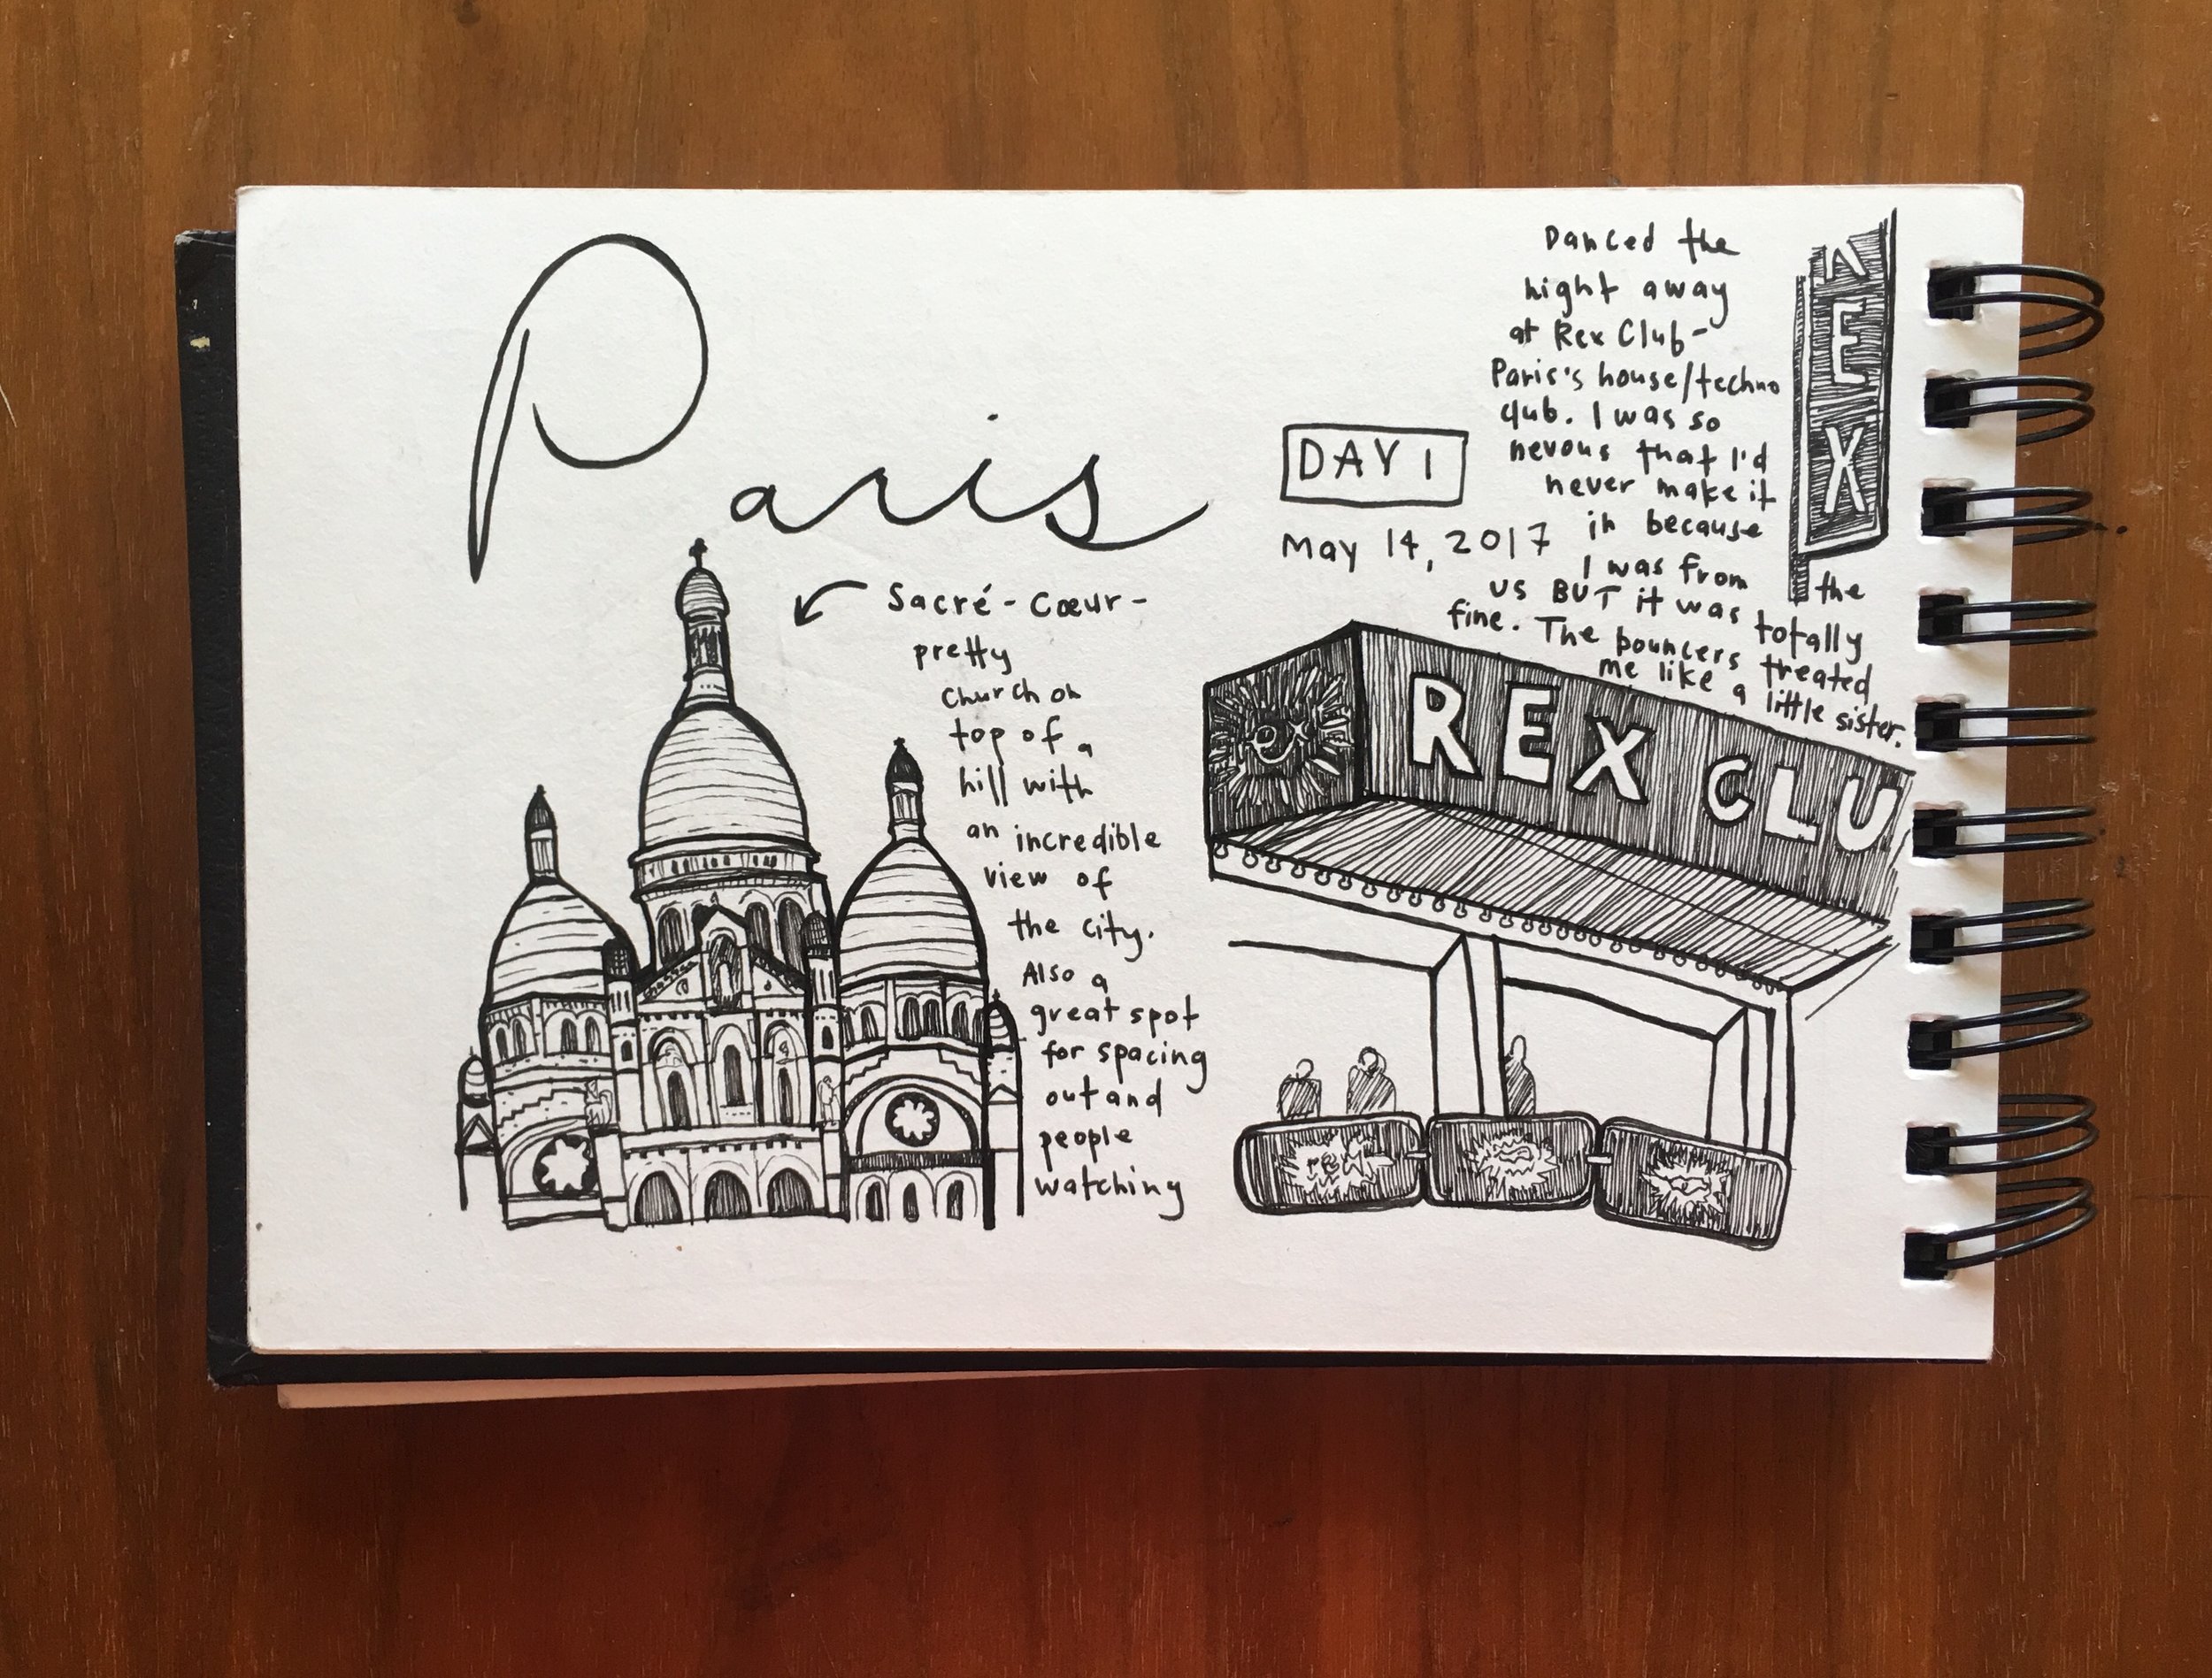 Paris
Sacré-Cœur-
pretty
church on
top of a
hill with
an incredible
view of
the city.
Also a
great spot
for spacing
out and
people
watching
DAY 1
May 14, 2017
Danced the
night away
at Rex Club-
Paris's house/techno
club. I was so
nevous that I'd
never make it
in because
I was from the
US BUT it was totally
fine. The bouncers treated
me like a little sister.
REX
REX CLU
rex